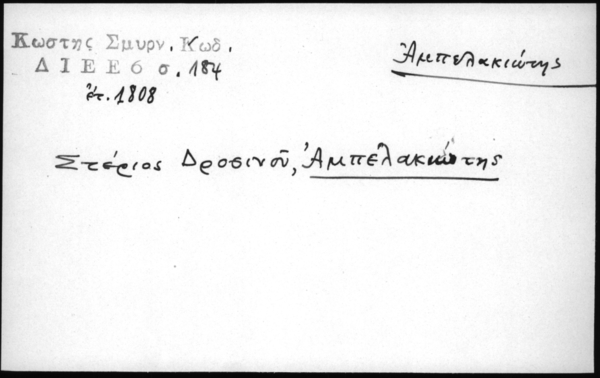 Κωστης Σμυρν. Κωδ.
Δ Ι Ε Ε 6 σ. 184
ἔτ. 1808
Ἀμπελακιώτης
Στέριος Δροσινοῦ, Ἀμπελακιώτης